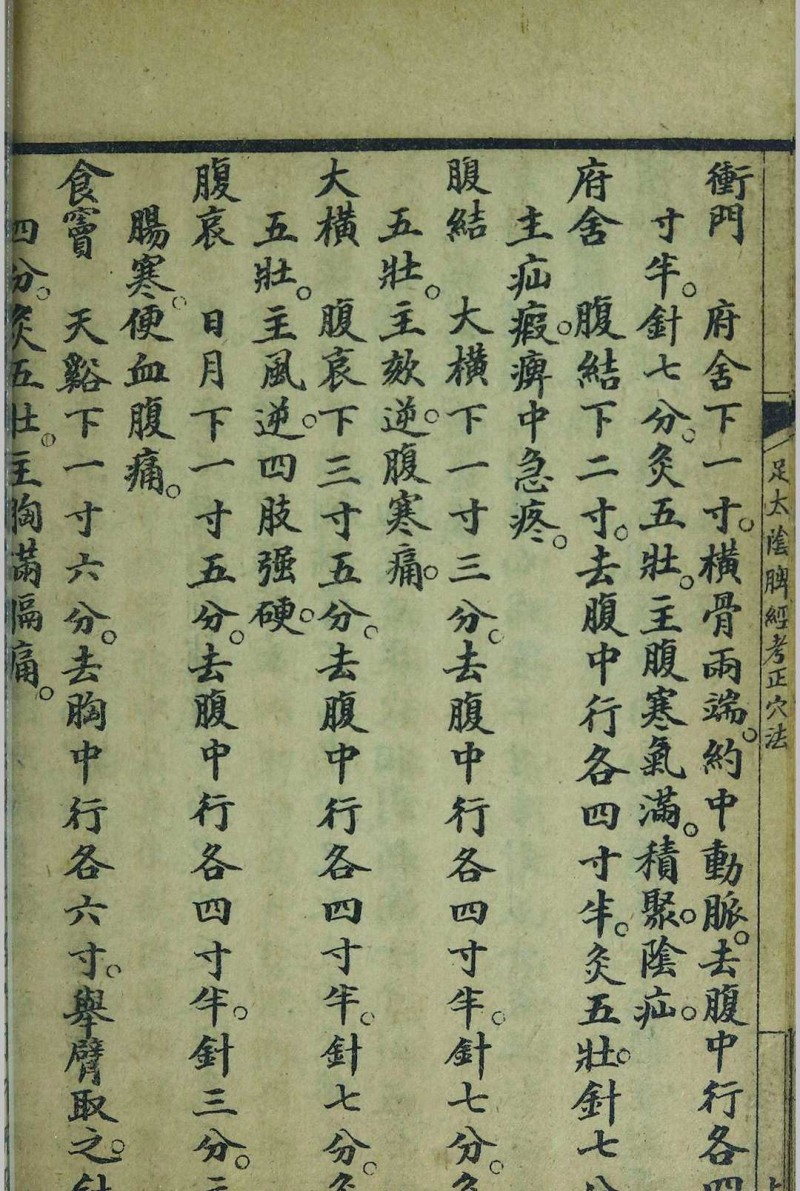 足太陰脾經考正穴法
衝門　府舍下一寸。橫骨兩端。約中動脈。去腹中行各四
寸半。針七分。灸五壯。主腹寒氣滿。積聚。陰疝。
府舍　腹結下二寸。去腹中行各四寸半。灸五壯。針七
主疝瘕。痺中急疼。
腹結　大橫下一寸三分。去腹中行各四寸半。針七分。灸
五壯。主欬逆。腹寒痛。
大橫　腹哀下三寸五分。去腹中行各四寸半。針七分。灸
五壯。主風逆。四肢强硬。
腹哀　日月下一寸五分。去腹中行各四寸半。針三分。
腸寒。便血腹痛。
食竇　天谿下一寸六分。去胸中行各六寸。舉臂取之。針
四分。灸五壯。主胸滿膈痛。